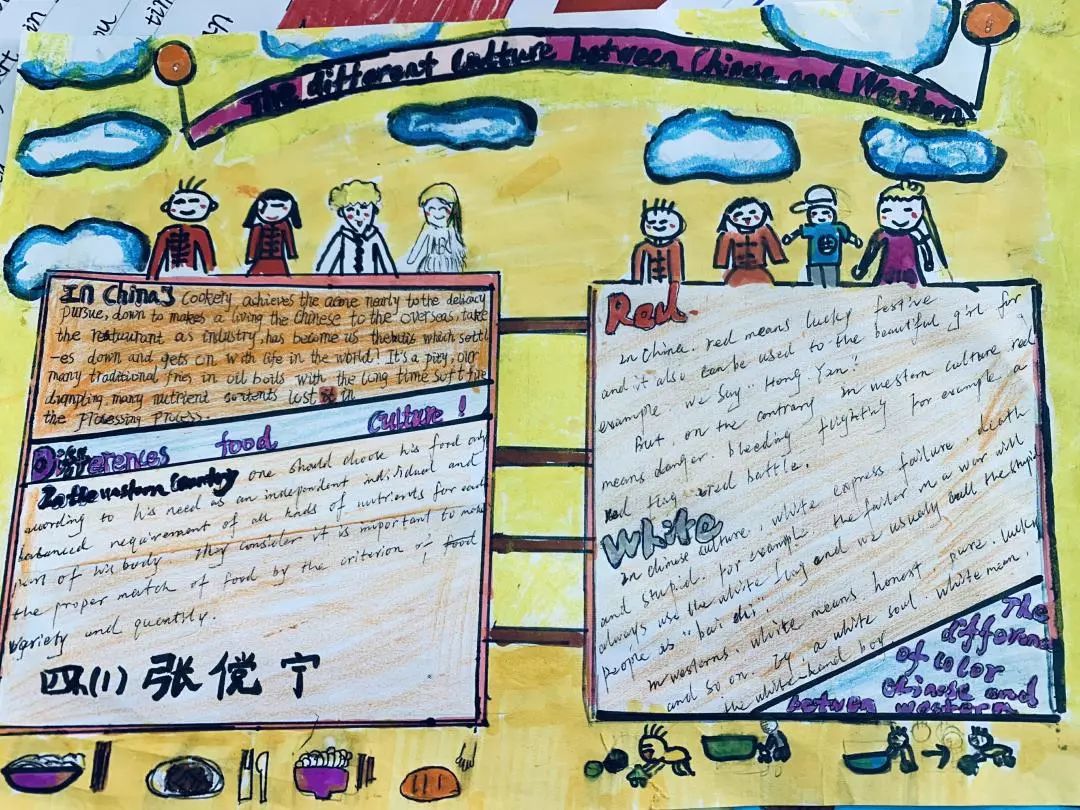 The different Culture between Chinese and Western
In China, Cookery achieves the acme nearly to the delicacy
pursue, down to makes a living the Chinese to the overseas, take
the restaurant as industry, has become us which settl
-es down and gets on with life in the world! It's a pity, our
many traditional fries in oil boils with the long time soft fire
many nutrient contents lost it in
the Processing Process.
Differences food Culture!
In the western Country one should choose his food only
according to his need as an independent individual and
balanced requirement of all kinds of nutrients for each
part of his body. They consider it is important to make
the proper match of food by the criterion of food
variety and quantity.
四(1) 张 宁
Red
In China. red means lucky festive
and it also can be used to the beautiful girl for
example. we say "Hong Yan!
But, on the contrary in western culture red
means danger. bleeding for example a
red flag. red battle.
White
In chinese culture, white express failure, death
and stupid. for example. the failor in a war will
always use the white flag and we usually call the stupid
people as "bai chi".
In westerns. white means honest. pure. lucky
and so on. a white soul. white mean.
the white-hand boy
The
difference
of color
between Chinese and
western